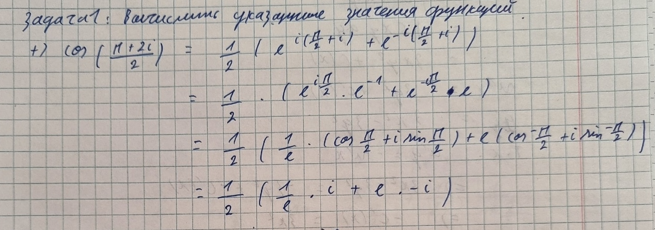 Задача 1: Вычислить указанные значения функций.
+) cos(π+2i / 2) = 1/2 (e^{i(π/2+i)} + e^{-i(π/2+i)})
= 1/2 · (e^{iπ/2} · e^{-1} + e^{-iπ/2} · e)
= 1/2 (1/e · (cos π/2 + i sin π/2) + e (cos -π/2 + i sin -π/2))
= 1/2 (1/e · i + e · -i)